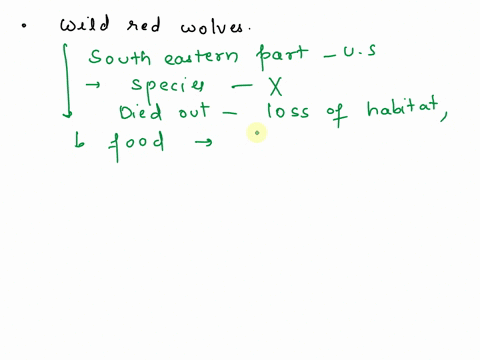 • Wild red wolves.
South eastern part - U.S
→ species - X
Died out - loss of habitat,
food →